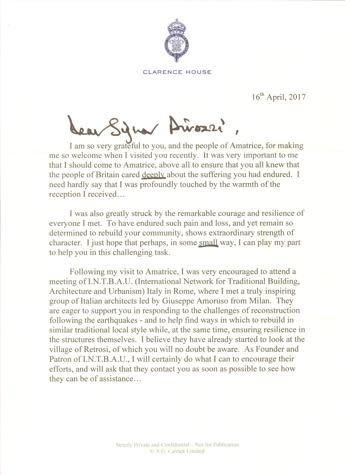 CLARENCE HOUSE
16th April, 2017
Dear Signor Pirozzi,
I am so very grateful to you, and the people of Amatrice, for making
me so welcome when I visited you recently. It was very important to me
that I should come to Amatrice, above all to ensure that you all knew that
the people of Britain cared deeply about the suffering you had endured. I
need hardly say that I was profoundly touched by the warmth of the
reception I received…
I was also greatly struck by the remarkable courage and resilience of
everyone I met. To have endured such pain and loss, and yet remain so
determined to rebuild your community, shows extraordinary strength of
character. I just hope that perhaps, in some small way, I can play my part
to help you in this challenging task.
Following my visit to Amatrice, I was very encouraged to attend a
meeting of I.N.T.B.A.U. (International Network for Traditional Building,
Architecture and Urbanism) Italy in Rome, where I met a truly inspiring
group of Italian architects led by Giuseppe Amoruso from Milan. They
are eager to support you in responding to the challenges of reconstruction
following the earthquakes - and to help find ways in which to rebuild in
similar traditional local style while, at the same time, ensuring resilience in
the structures themselves. I believe they have already started to look at the
village of Retrosi, of which you will no doubt be aware. As Founder and
Patron of I.N.T.B.A.U., I will certainly do what I can to encourage their
efforts, and will ask that they contact you as soon as possible to see how
they can be of assistance…
Strictly Private and Confidential – Not for Publication
© A.G. Carrick Limited